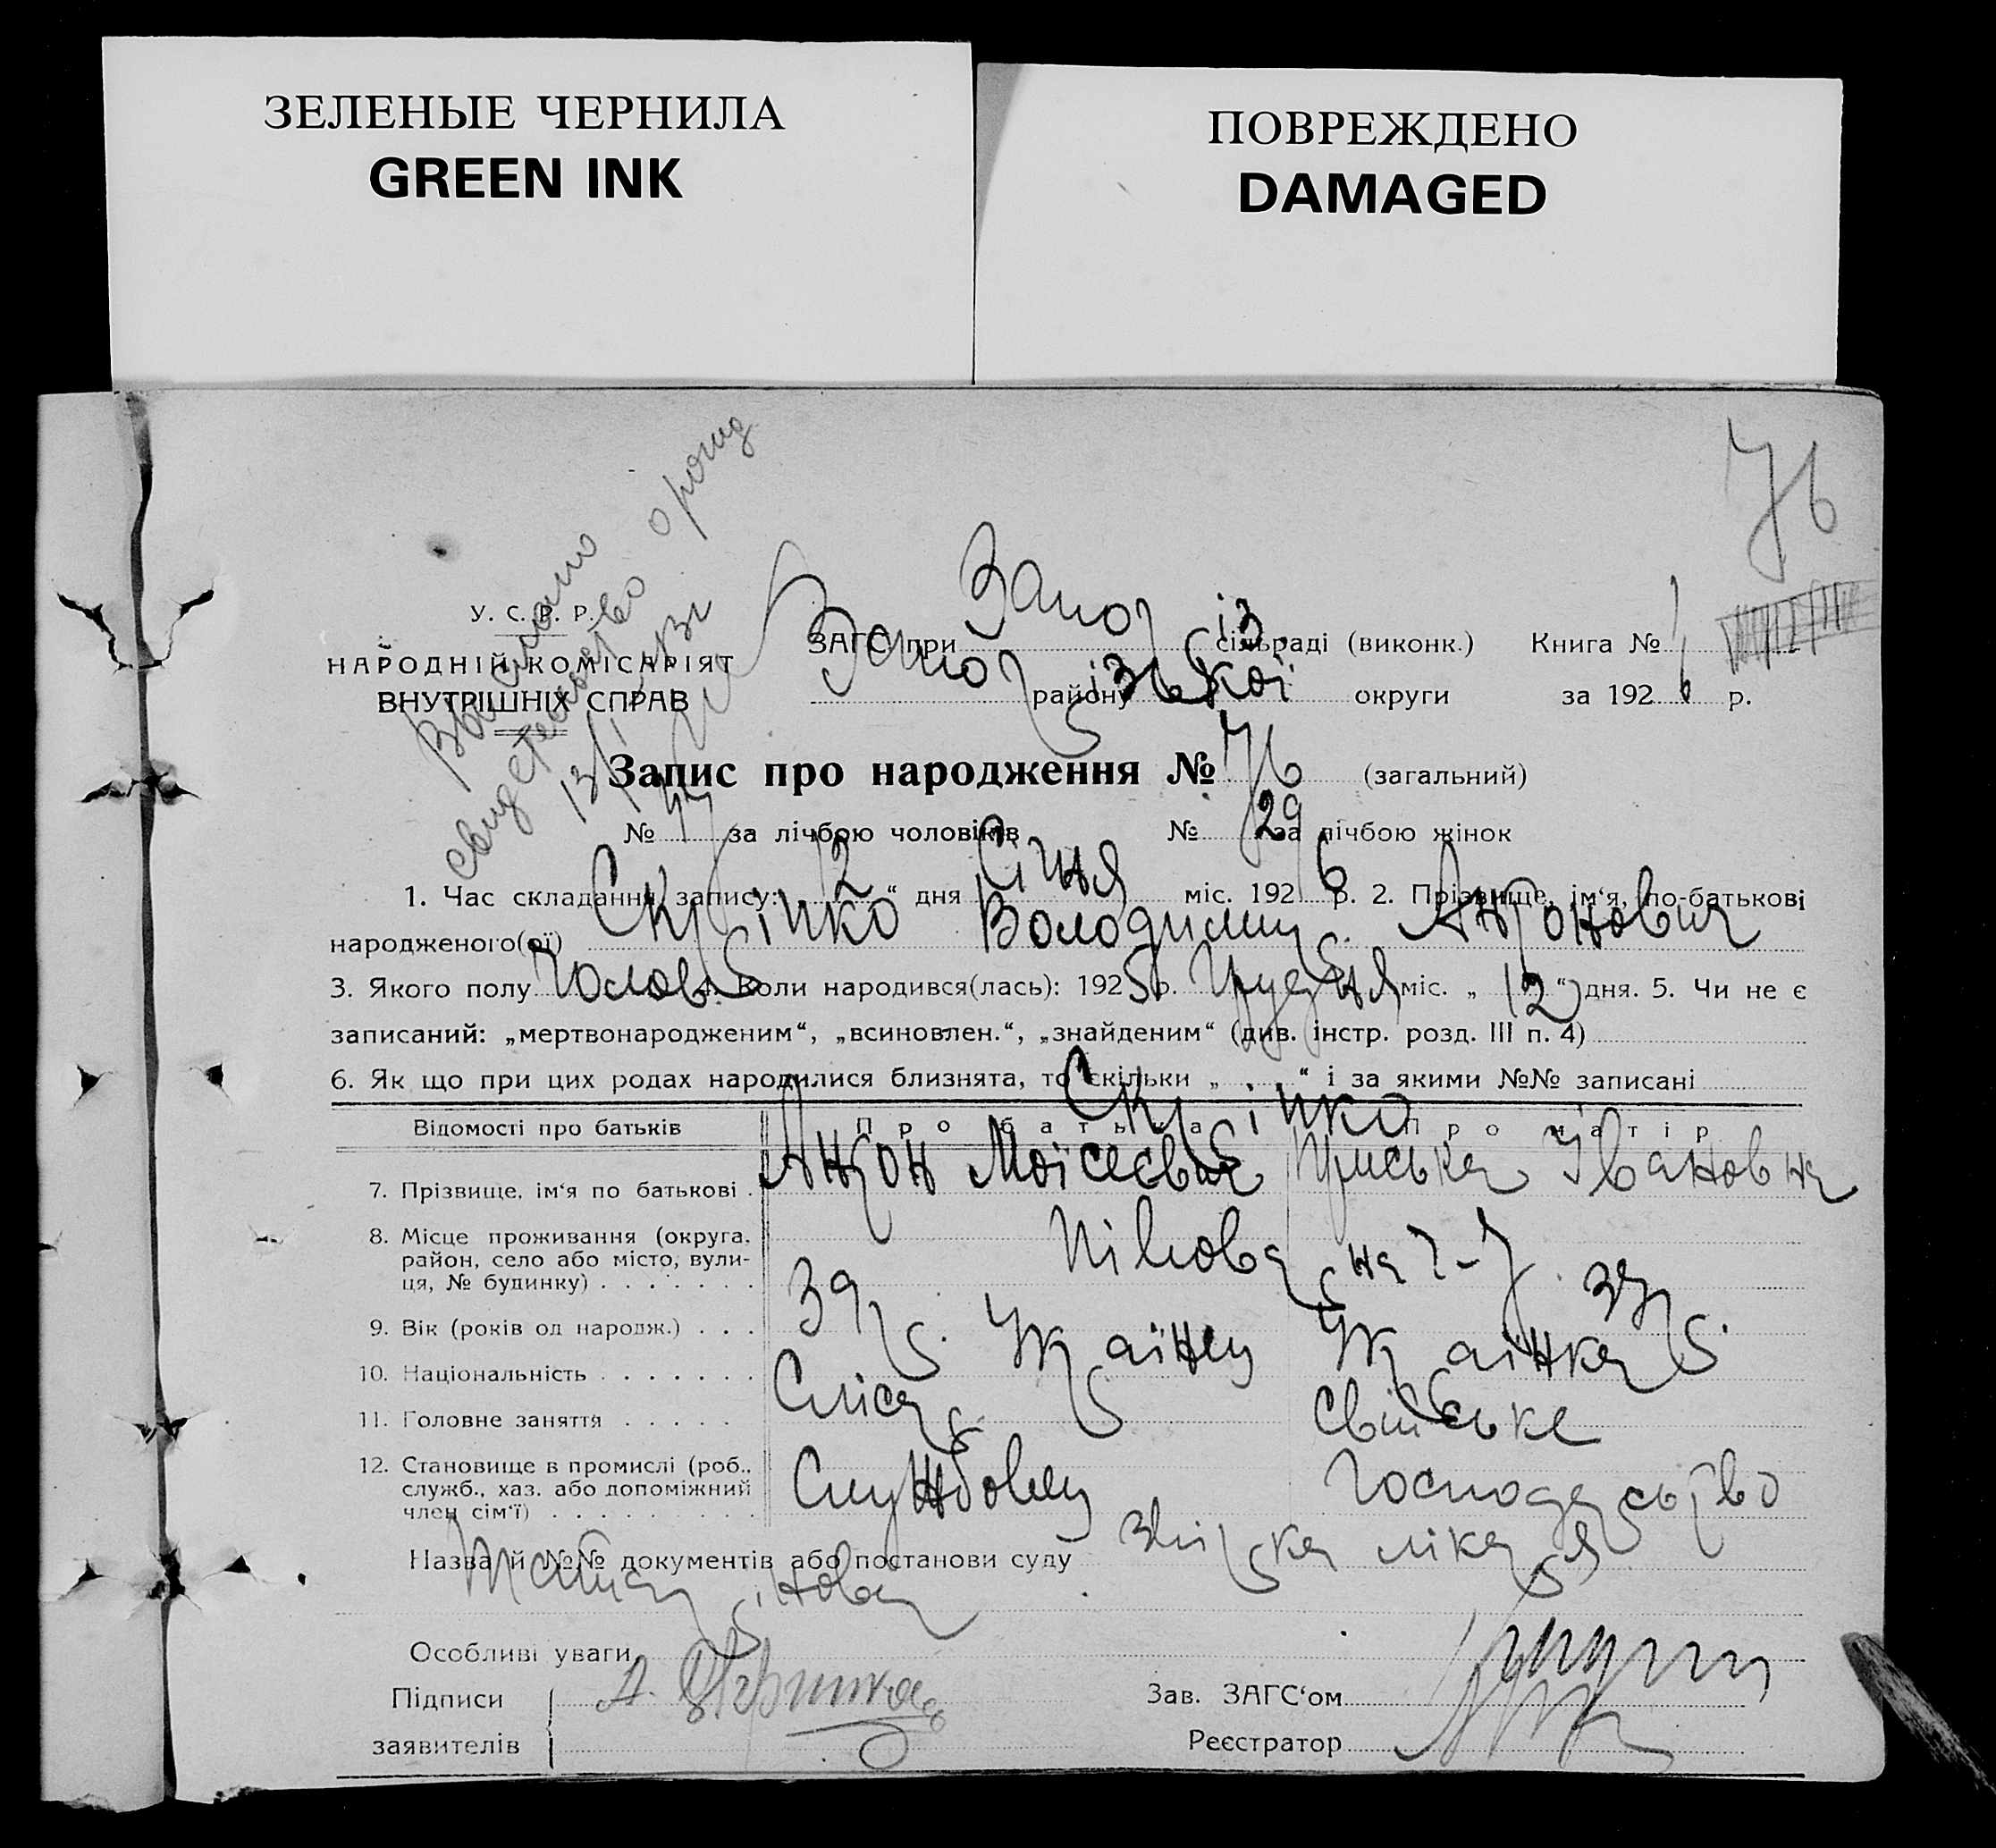 ЗЕЛЕНЫЕ ЧЕРНИЛА
GREEN INK
ПОВРЕЖДЕНО
DAMAGED
76
Выдано
свидетельство о рожд
У. С. Р. Р.
НАРОДНІЙ КОМІСАРІЯТ
ВНУТРІШНІХ СПРАВ
ЗАГС при Запоріз. сільраді (виконк.) Книга № 1
Запорізької району округи за 1926 р.
Запис про народження № 76 (загальний)
№ 47 за лічбою чоловіків № 29 за лічбою жінок
1. Час складання запису: 12 “ дня Січня міс. 1926 р. 2. Прізвище, ім‘я, по-батькові
народженого(ої) Скрипко Володимир Антонович
3. Якого полу Чолов. 4. Коли народився(лась): 1925 р. Грудня міс. „ 12 “ дня. 5. Чи не є
записаний: „мертвонародженим“, „всиновлен.“, „знайденим“ (див. інстр. розд. III п. 4)
6. Як що при цих родах народилися близнята, то скільки „ . . . “ і за якими №№ записані
Відомості про батьків Про батька Про матір
Скрипко
7. Прізвище, ім‘я по батькові . Антон Моїсеєвич Приська Івановна
8. Місце проживання (округа,
район, село або місто, вули-
ця, № будинку) . . . . . . .
9. Вік (років од народж.) . . . 39 р.
10. Національність . . . . . . . Українец Українка
11. Головне заняття . . . . . Слюсар Свійське
12. Становище в промислі (роб.,
служб., хаз. або допоміжний
член сім‘ї) . . . . . . . . . Службовец Господарьство
Назва й №№ документів або постанови суду лікаря
Особливі уваги
Підписи
заявителів
Зав. ЗАГС‘ом
Реєстратор